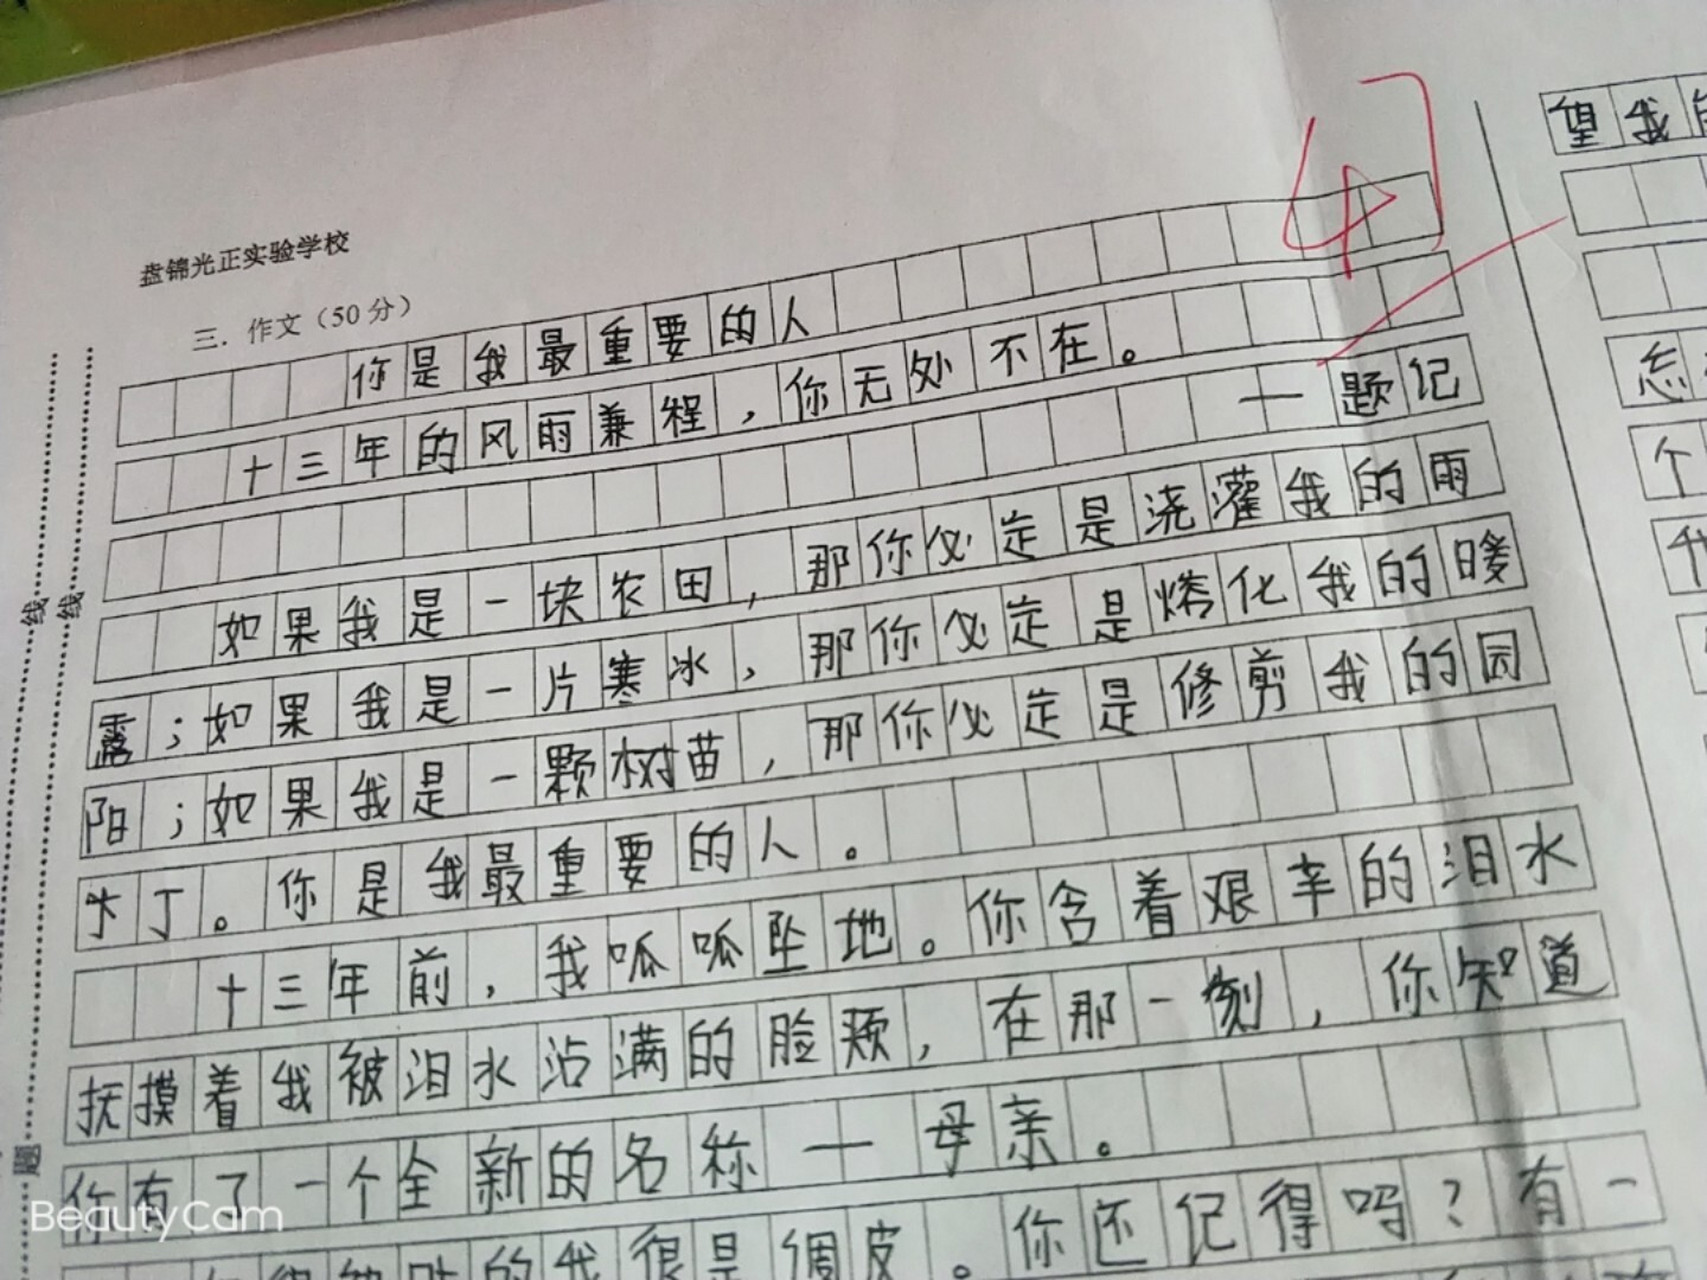 盘锦光正实验学校
三．作文（50分）
47
你是我最重要的人
十三年的风雨兼程，你无处不在。
——题记
如果我是一块农田，那你必定是浇灌我的雨
露；如果我是一片寒冰，那你必定是熔化我的暖
阳；如果我是一颗树苗，那你必定是修剪我的园
丁。你是我最重要的人。
十三年前，我呱呱坠地。你含着艰辛的泪水
抚摸着我被泪水沾满的脸颊，在那一刻，你知道
你有了一个全新的名称——母亲。
的我很是调皮。你还记得吗？有一
望我
怎
个
线
线
题
BeautyCam